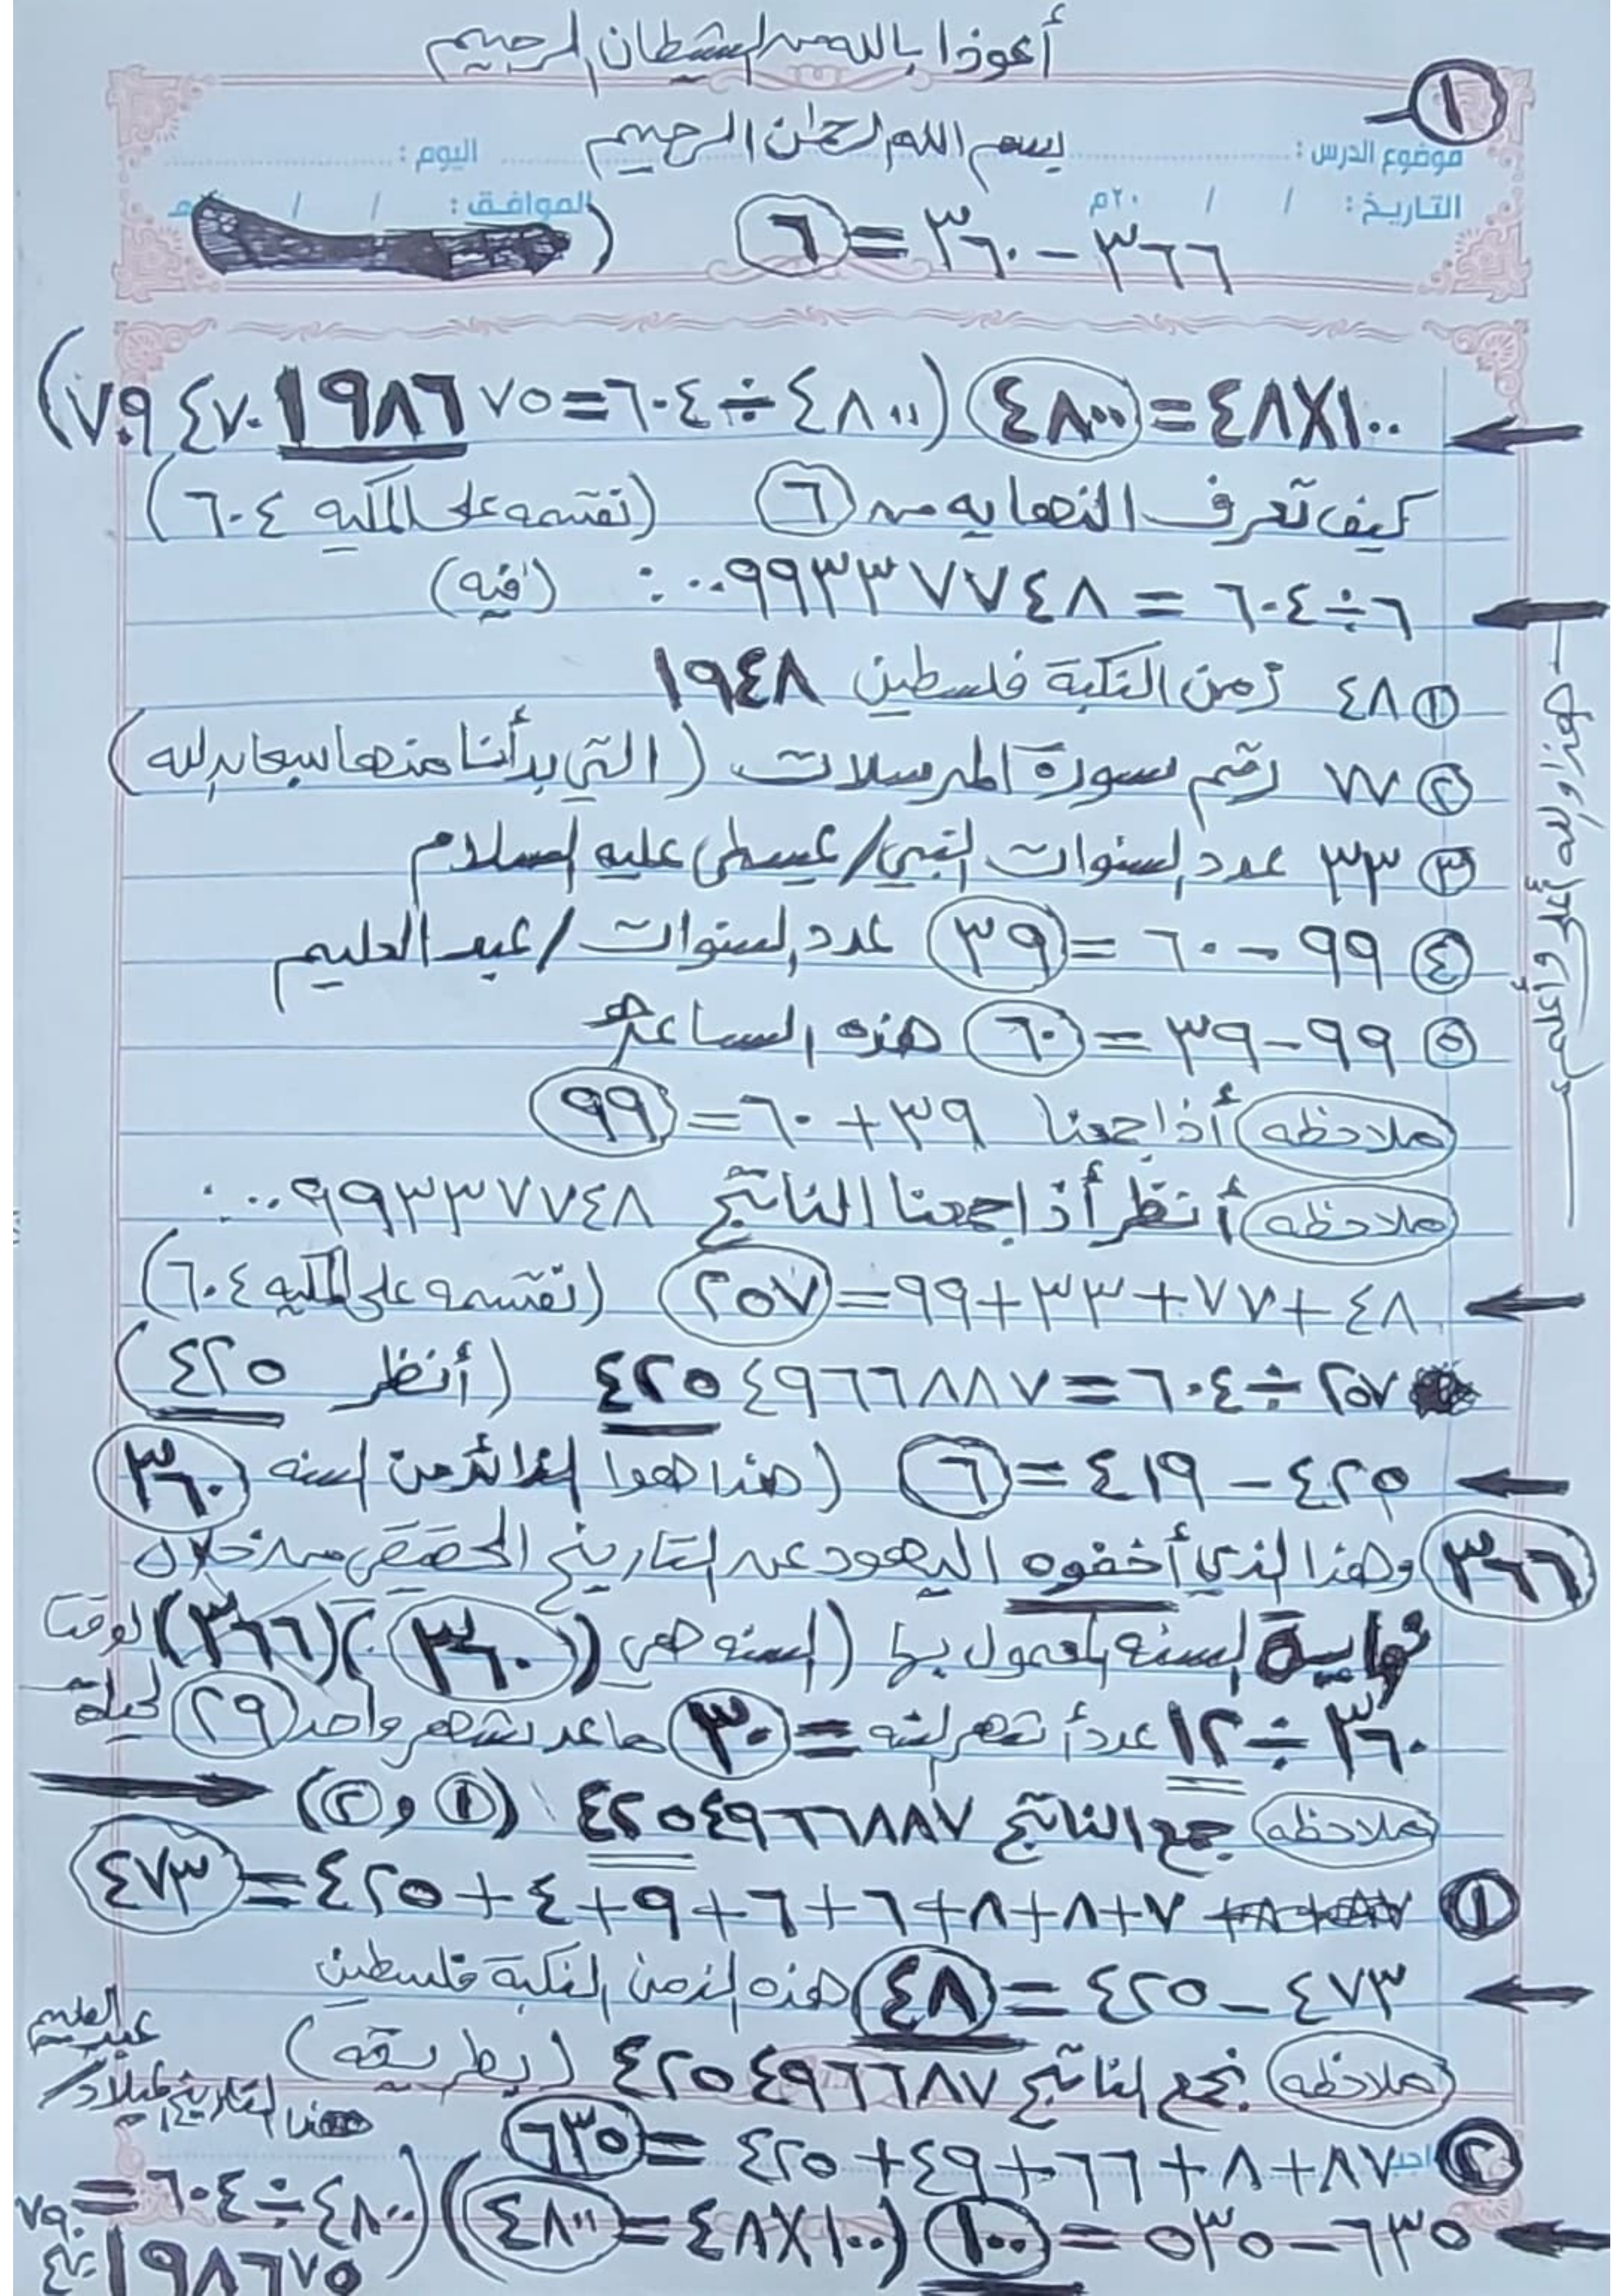 أعوذا بالله من الشيطان الرجيم
١
بسم الله الرحمٰن الرحيم
موضوع الدرس : اليوم :
التاريخ : / / ٢٠م الموافق : / /
٣٦٦ - ٣٦٠ = ٦ (
١٠٠×٤٨ = ٤٨٠٠ (٤٨٠٠ ÷ ٦٠٤ = ٧٥ ١٩٨٦ ٤٧٠ ٧٩)
كيف تعرف النهايه من ٦ (نقسمه على المكيه ٦٠٤)
٦ ÷ ٦٠٤ = ٠٠٩٩٣٣٧٧٤٨ : (فيه)
① ٤٨ زمن النكبة فلسطين ١٩٤٨
② ٧٧ رقم سورة المرسلات (التي بدأنا منها سبحان الله)
③ ٣٣ عدد السنوات النبي / عيسى عليه السلام
④ ٩٩ - ٦٠ = ٣٩ عدد السنوات / عبد العليم
⑤ ٩٩ - ٣٩ = ٦٠ هذه الساعة
ملاحظه أذا جمعنا ٣٩ + ٦٠ = ٩٩
ملاحظه أنظر أذا جمعنا الناتج ٠٠٩٩٣٣٧٧٤٨ :
٤٨ + ٧٧ + ٣٣ + ٩٩ = ٢٥٧ (نقسمه على المكيه ٦٠٤)
٢٥٧ ÷ ٦٠٤ = ٤٢٥٤٩٦٦٨٨٧ (أنظر ٤٢٥)
٤٢٥ - ٤١٩ = ٦ (هذا هوا الزائد من السنه ٣٦٠
٣٦٦ وهذا الذي أخفوه اليهود عن التاريخ الحقيقي من خلال
نهاية السنه المعمول بها (السنه هي (٣٦٠) (٣٦٦) لوقتنا
٣٦٠ ÷ ١٢ عدد أشهر السنه = ٣٠ ماعد شهر واحد ٢٩ ليلة
ملاحظه جمع الناتج ٤٢٥٤٩٦٦٨٨٧ (① و ②)
① ٧+٨+٨+٦+٦+٩+٤+٤٢٥ = ٤٧٣
٤٧٣ - ٤٢٥ = ٤٨ هذه الزمن النكبة فلسطين
ملاحظه نجمع الناتج ٤٢٥٤٩٦٦٨٧ (بطريقه)
② ٨٧+٨+٦٦+٤٩+٤٢٥ = ٦٣٥
٦٣٥ - ٥٣٥ = ١٠٠ (١٠٠×٤٨ = ٤٨٠٠) (٤٨٠٠ ÷ ٦٠٤ =
١٩٨٦٧٥
هذا التاريخ الميلاد /
عبد العليم
هذا والله أعلى وأعلم